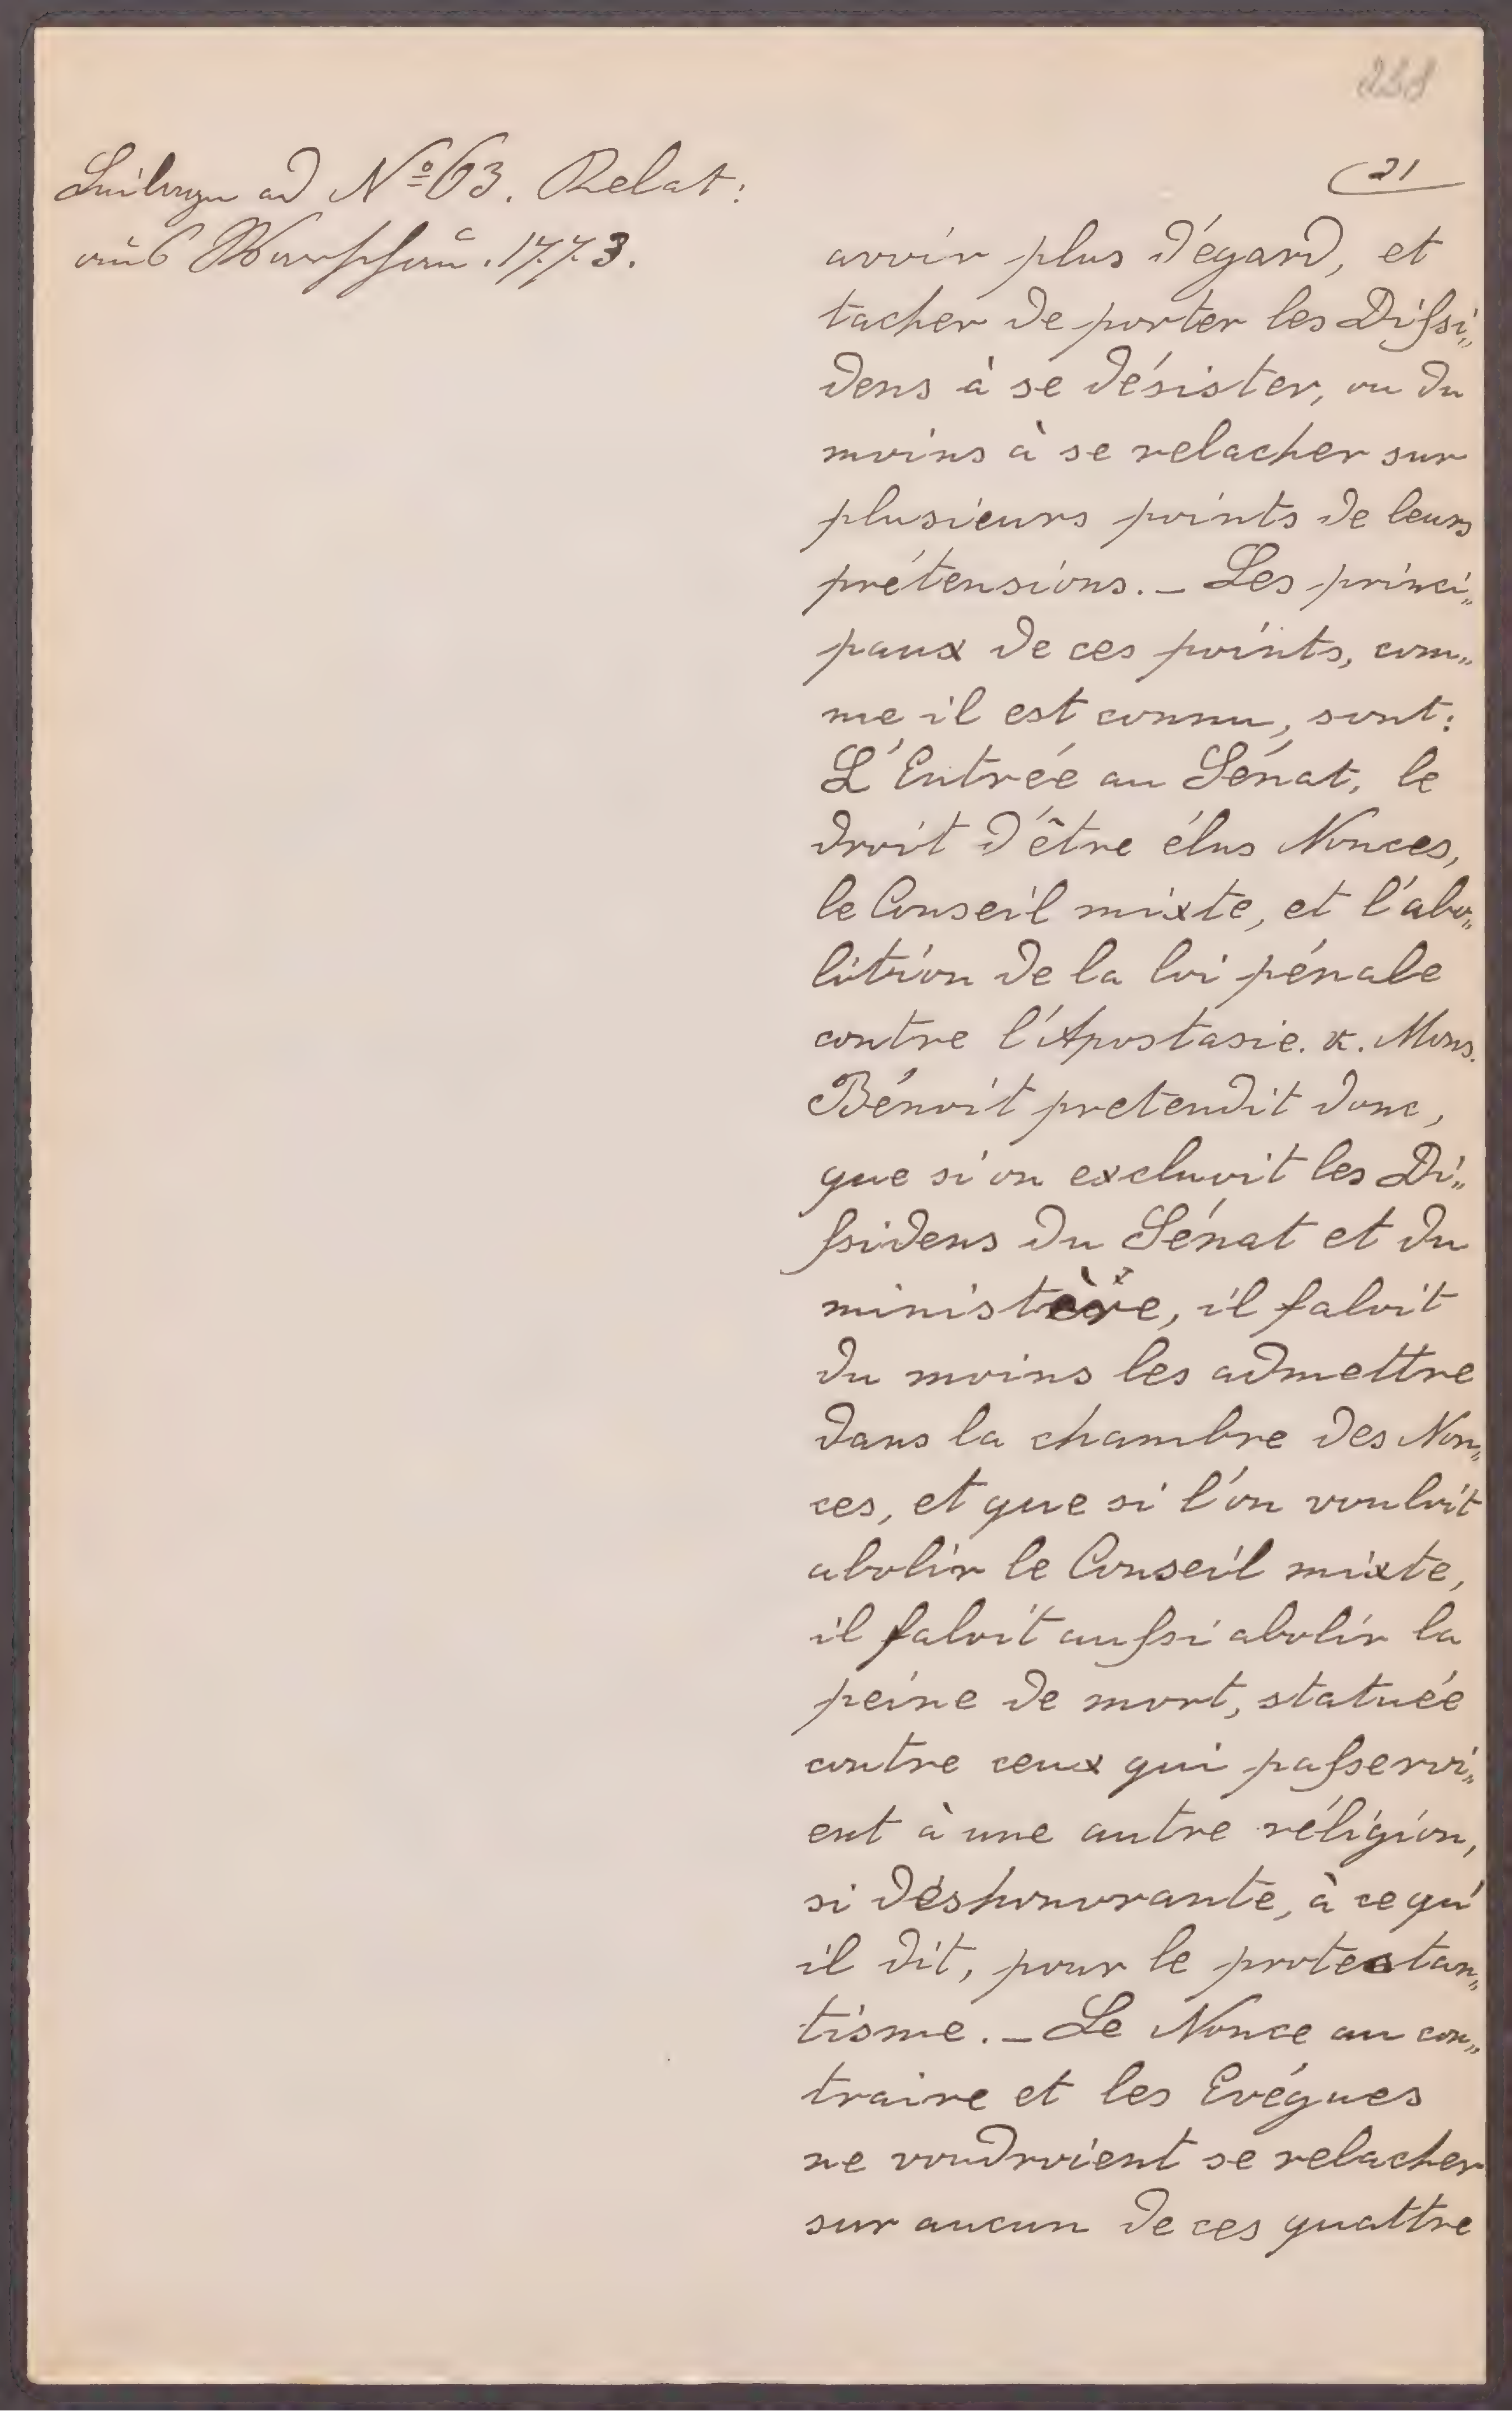 238
Beilagen ad Nº 63. Relat:
aus Warschau. 1773.
21
avoir plus d'égard, et
tacher de porter les Dissi„
dens à se désister, ou du
moins à se relacher sur
plusieurs points de leurs
prétensions. – Les princi„
paux de ces points, com„
me il est connu, sont:
L'Entrée au Sénat, le
droit d'être élus Nonces,
le Conseil mixte, et l'abo„
lition de la loi pénale
contre l'Apostasie. &. Mons.
Bénoit pretendit donc,
que si on excluoit les Di„
ssidens du Sénat et du
ministère, il faloit
du moins les admettre
dans la chambre des Non„
ces, et que si l'on vouloit
abolir le Conseil mixte,
il faloit aussi abolir la
peine de mort, statuée
contre ceux qui passeroi„
ent à une autre réligion,
si déshonorante, à ce qu'
il dit, pour le protestan„
tisme. – Le Nonce au con„
traire et les Evéques
ne voudroient se relacher
sur aucun de ces quattre